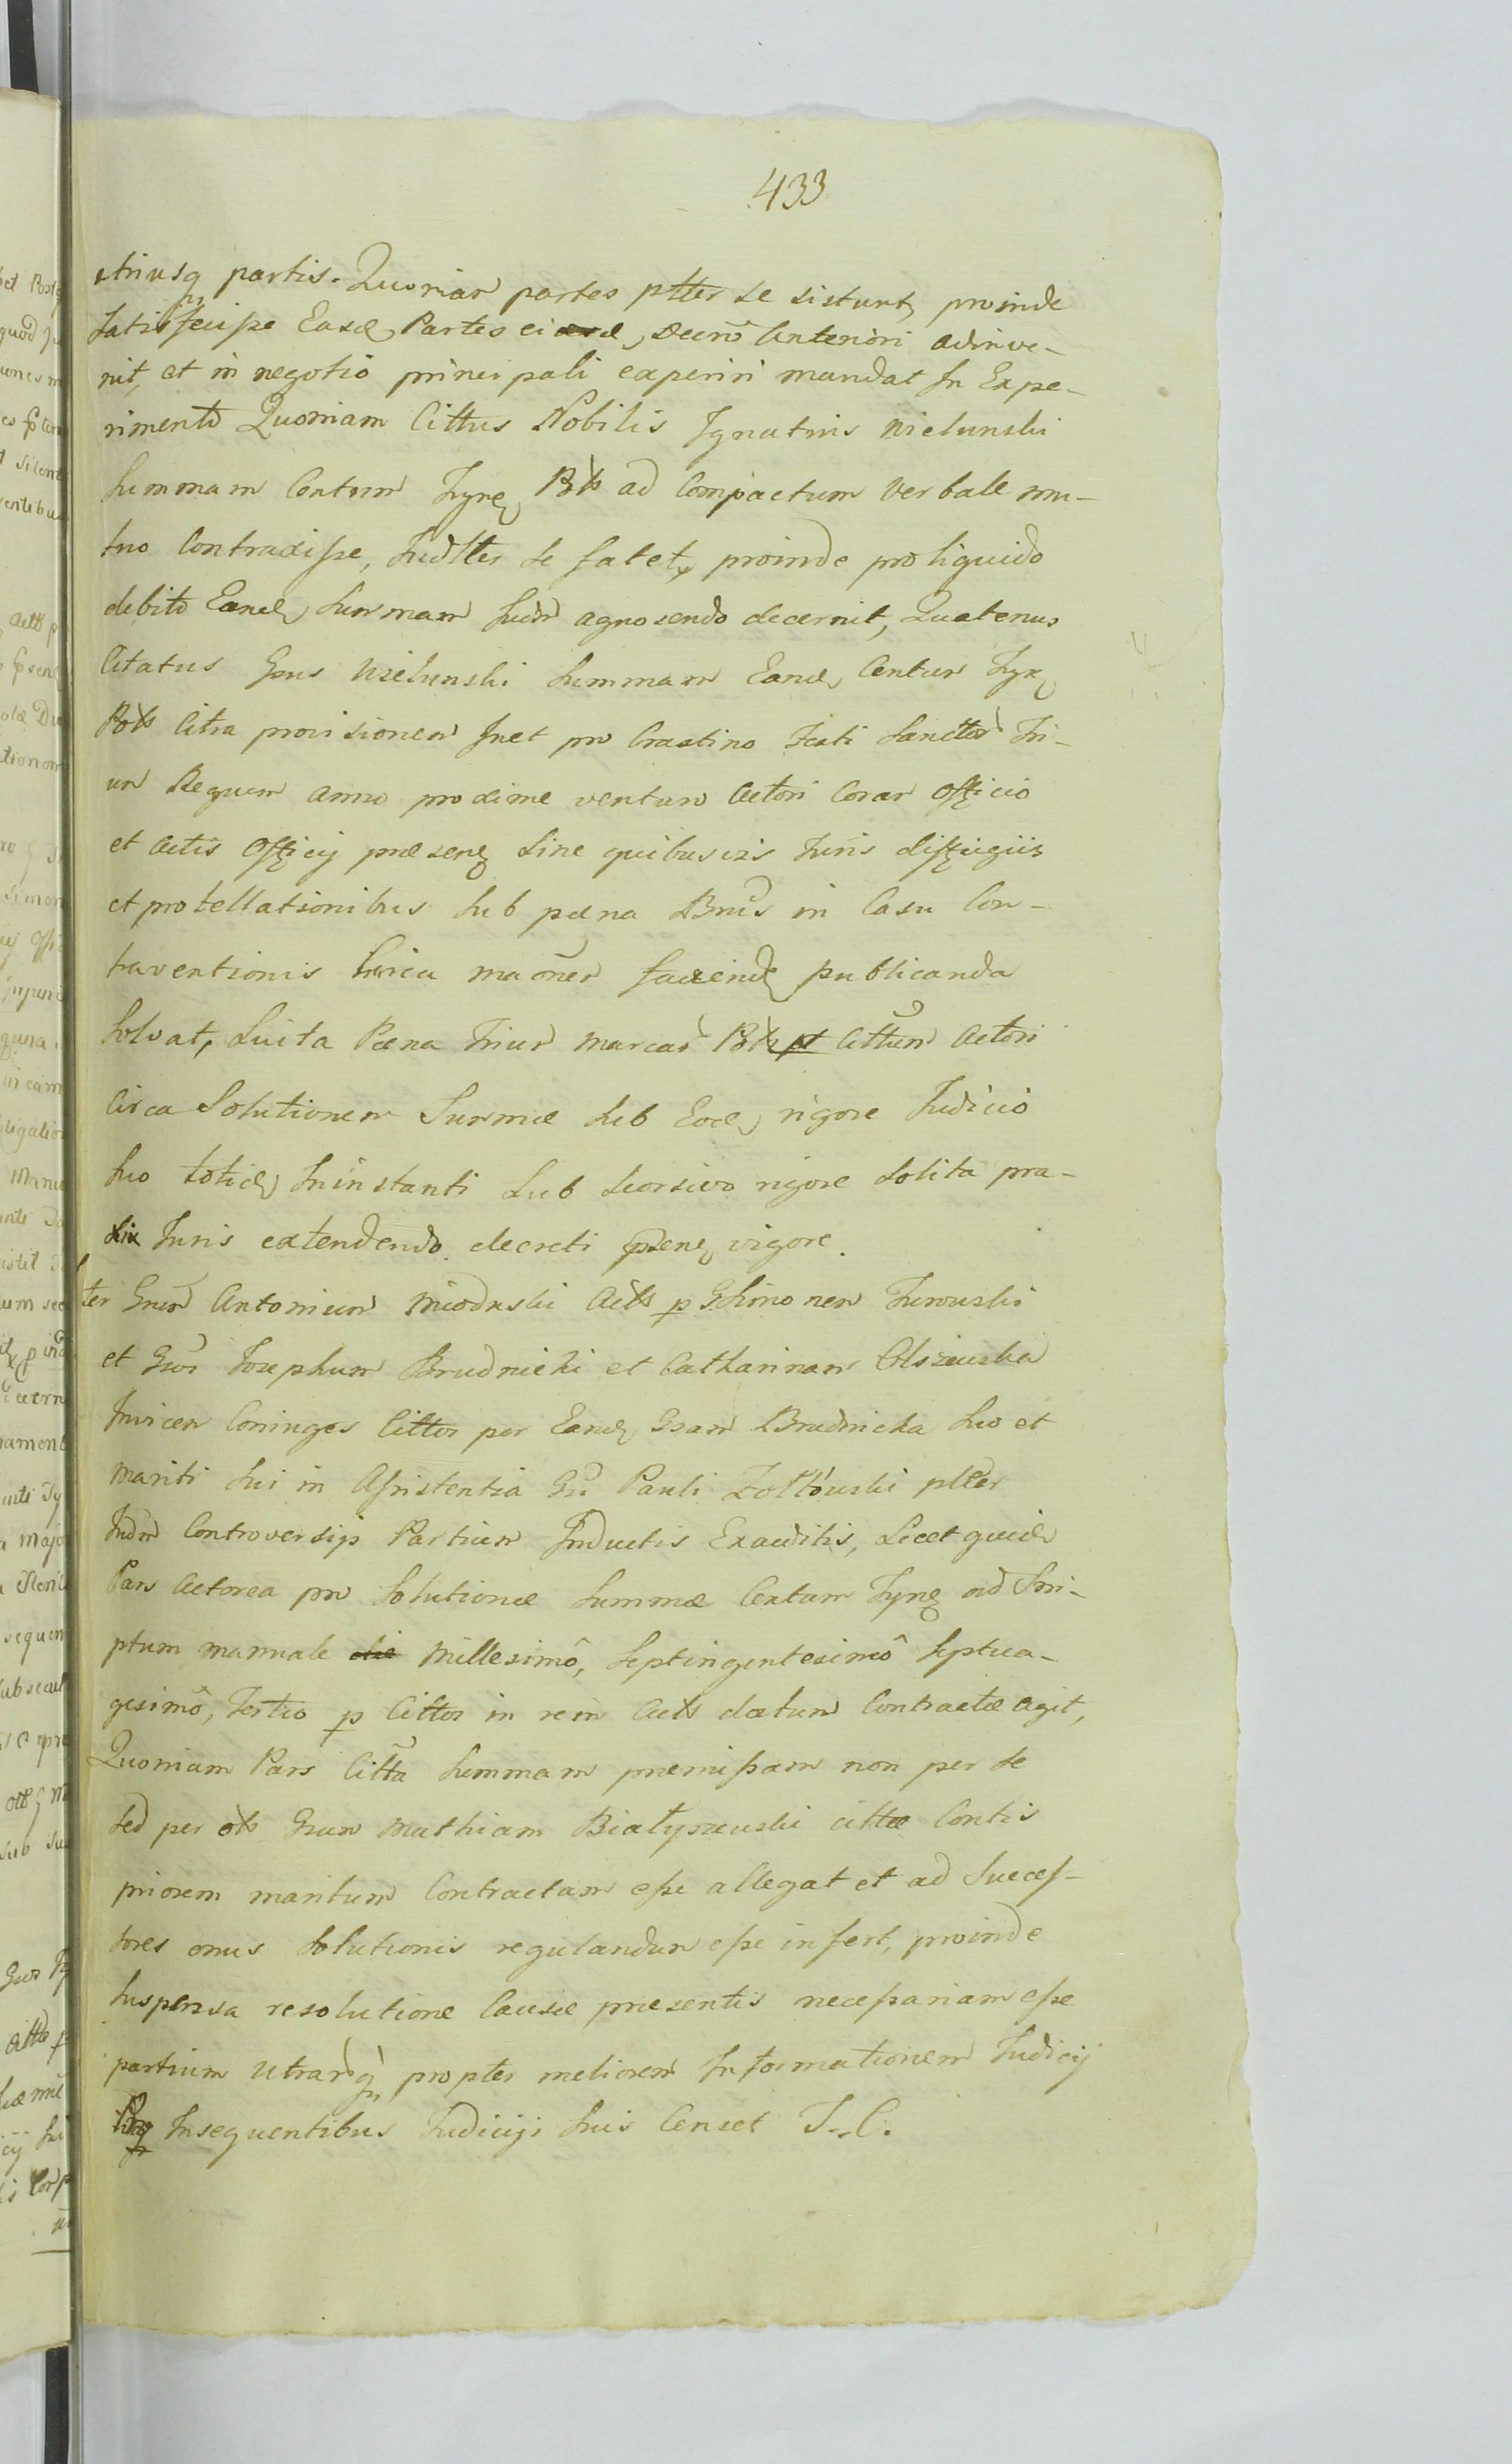 433
utriusq partis. Quoniam partes ptter se sistunt, proinde
satisfecisse Easd Partes Decro Anteriori adinve-
nit, et in negotio principali experiri mandat In Expe-
rimento Quoniam Cittus Nobilis Ignatius Wielunski
Summam Centum Tyn Pols ad Compactum Verbale mu-
tuo Contraxisse, Judtter se fatet, proinde pro liquido
debito Eand Summam Judm agnoscendo decernit, Quatenus
Citatus Gsus Wielunski Summam Eand Centum Tyn
Pols Citra provisionem pro Crastino Festi Sanctor Tri-
um Regum anno proxime venturo Actori Coram Officio
et Actis Officij præsen Sine quibusvis Juris diffugiis
et protellationibus Sub pœna Bnis in Casu Con-
traventionis facien publicanda
Solvat, Luita Pœna Trium Marcar Pols Cittum Actori
Circa Solutionem Summæ Sub Eod rigore Judicio
suo totid Ininstanti Sub seorsivo rigore Solita pra-
xi Juris extendendo decreti præsen vigore.
ter Gsum Antonium Mioduski Acts p Gsimonem Turowski
et Gsos Josephum Brudnicki et Catharinam Olszewska
Invicem Coniuges Cittos per Eand Gsam Brudnicka Suo et
Mariti Sui in Assistentia Gsi Pauli Zołtowski ptter
Judm Controversijs Partium Inductis Exauditis, Licet quid
Pars Actorea pro Solutione Summæ Centum Tyn ad Scri-
ptum manuale die Millesimô, Septingentesimô Septua-
gesimô, Tertio p Cittos in rem Acts datum Contractæ agit,
Quoniam Pars Citta Summam præmissam non per se
sed per ols Gsum Mathiam Białyszewski cittæ Contis
priorem maritum Contractam esse allegat et ad Succes-
sores onus Solutionis regulandum esse infert, proinde
Suspensa resolutione Causæ præsentis necessariam esse
partium Utrarq propter meliorem Informationem Judicij
Insequentibus Judicijs Suis Censet J. C.